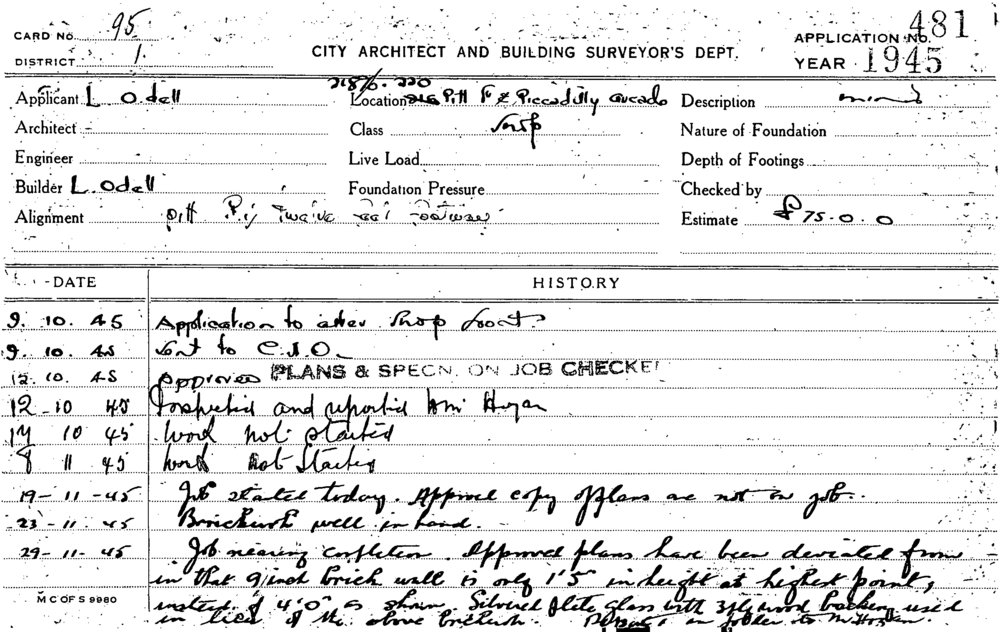 CARD No 95
DISTRICT 1.
CITY ARCHITECT AND BUILDING SURVEYOR'S DEPT.
APPLICATION No. 481
YEAR 1945
218/6. 220
Applicant L Odell
Location Pitt & Piccadilly arcade
Description minor
Architect
Class Shop
Nature of Foundation
Engineer
Live Load
Depth of Footings
Builder L. Odell
Foundation Pressure
Checked by
Alignment Pitt Twelve feet footway
Estimate £75-0.0
DATE HISTORY
9. 10. 45 Application to alter Shop front
9. 10. 45 Sent to C.I.O.
12. 10. 45 Approved PLANS & SPECN. ON JOB CHECKE
12-10 45 Inspected and reported Mr Hogan
17 10 45 Work not started
8 11 45 Work not Started
19-11-45 Job started today. Approved copy of plans are not on job.
23-11.45 Brickwork well in hand.
29-11-45 Job nearing completion. Approved plans have been deviated from
in that 9 inch brick wall is only 1'5" in height at highest point,
instead of 4'0" as shown. Silvered plate glass with 3ply wood backing used
in lieu of the above brickwork. in folder to Mr Hogan.
M C OF S 9980